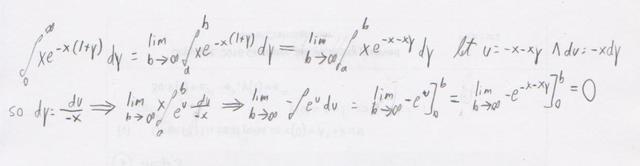 ∫₀^∞ xe^{-x(1+y)} dy = lim_{b→∞} ∫₀^b xe^{-x(1+y)} dy = lim_{b→∞} ∫₀^b xe^{-x-xy} dy let u=-x-xy ∧ du=-xdy
so dy=du/-x ⟹ lim_{b→∞} x∫e^u du/-x ⟹ lim_{b→∞} -∫e^u du = lim_{b→∞} -e^u]₀^b = lim_{b→∞} -e^{-x-xy}]₀^b = 0